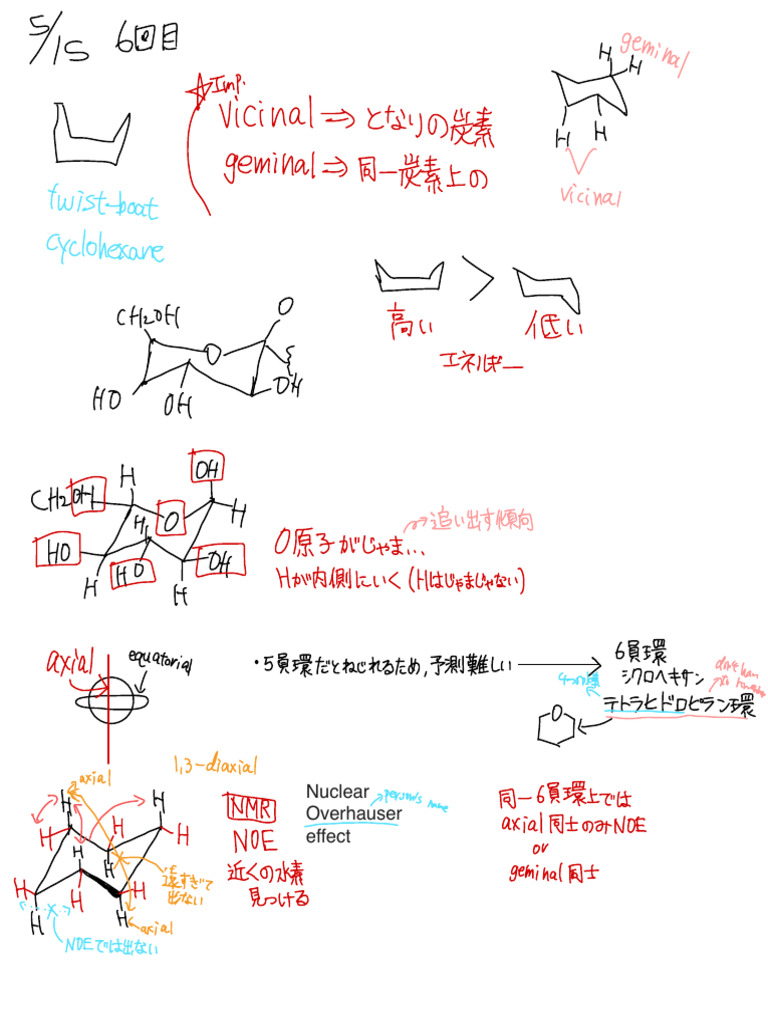 5/15 6回目
Imp.
vicinal ⇒ となりの炭素
geminal ⇒ 同一炭素上の
H
H
geminal
H
H
vicinal
twist-boat
cyclohexane
>
高い
低い
エネルギー
CH2OH
O
O
HO
OH
OH
H
OH
CH2OH
H
O
H
HO
HO
OH
H
H
→追い出す傾向
O原子がじゃま...
Hが内側にいく(Hはじゃまじゃない)
axial
equatorial
・5員環だとねじれるため,予測難しい →
6員環
シクロヘキサン
テトラヒドロピラン環
4つの
O
axial
1,3-diaxial
H
H
H
H
H
H
H
H
H
H
H
H
遠すぎて
出ない
axial
NOEでは出ない
NMR
NOE
近くの水素
見つける
Nuclear
Overhauser
effect
person's name
同一6員環上では
axial同士のみNOE
or
geminal同士